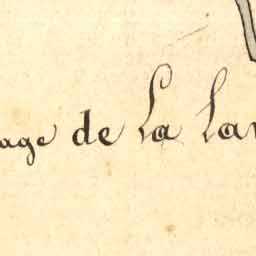 age de La Lan